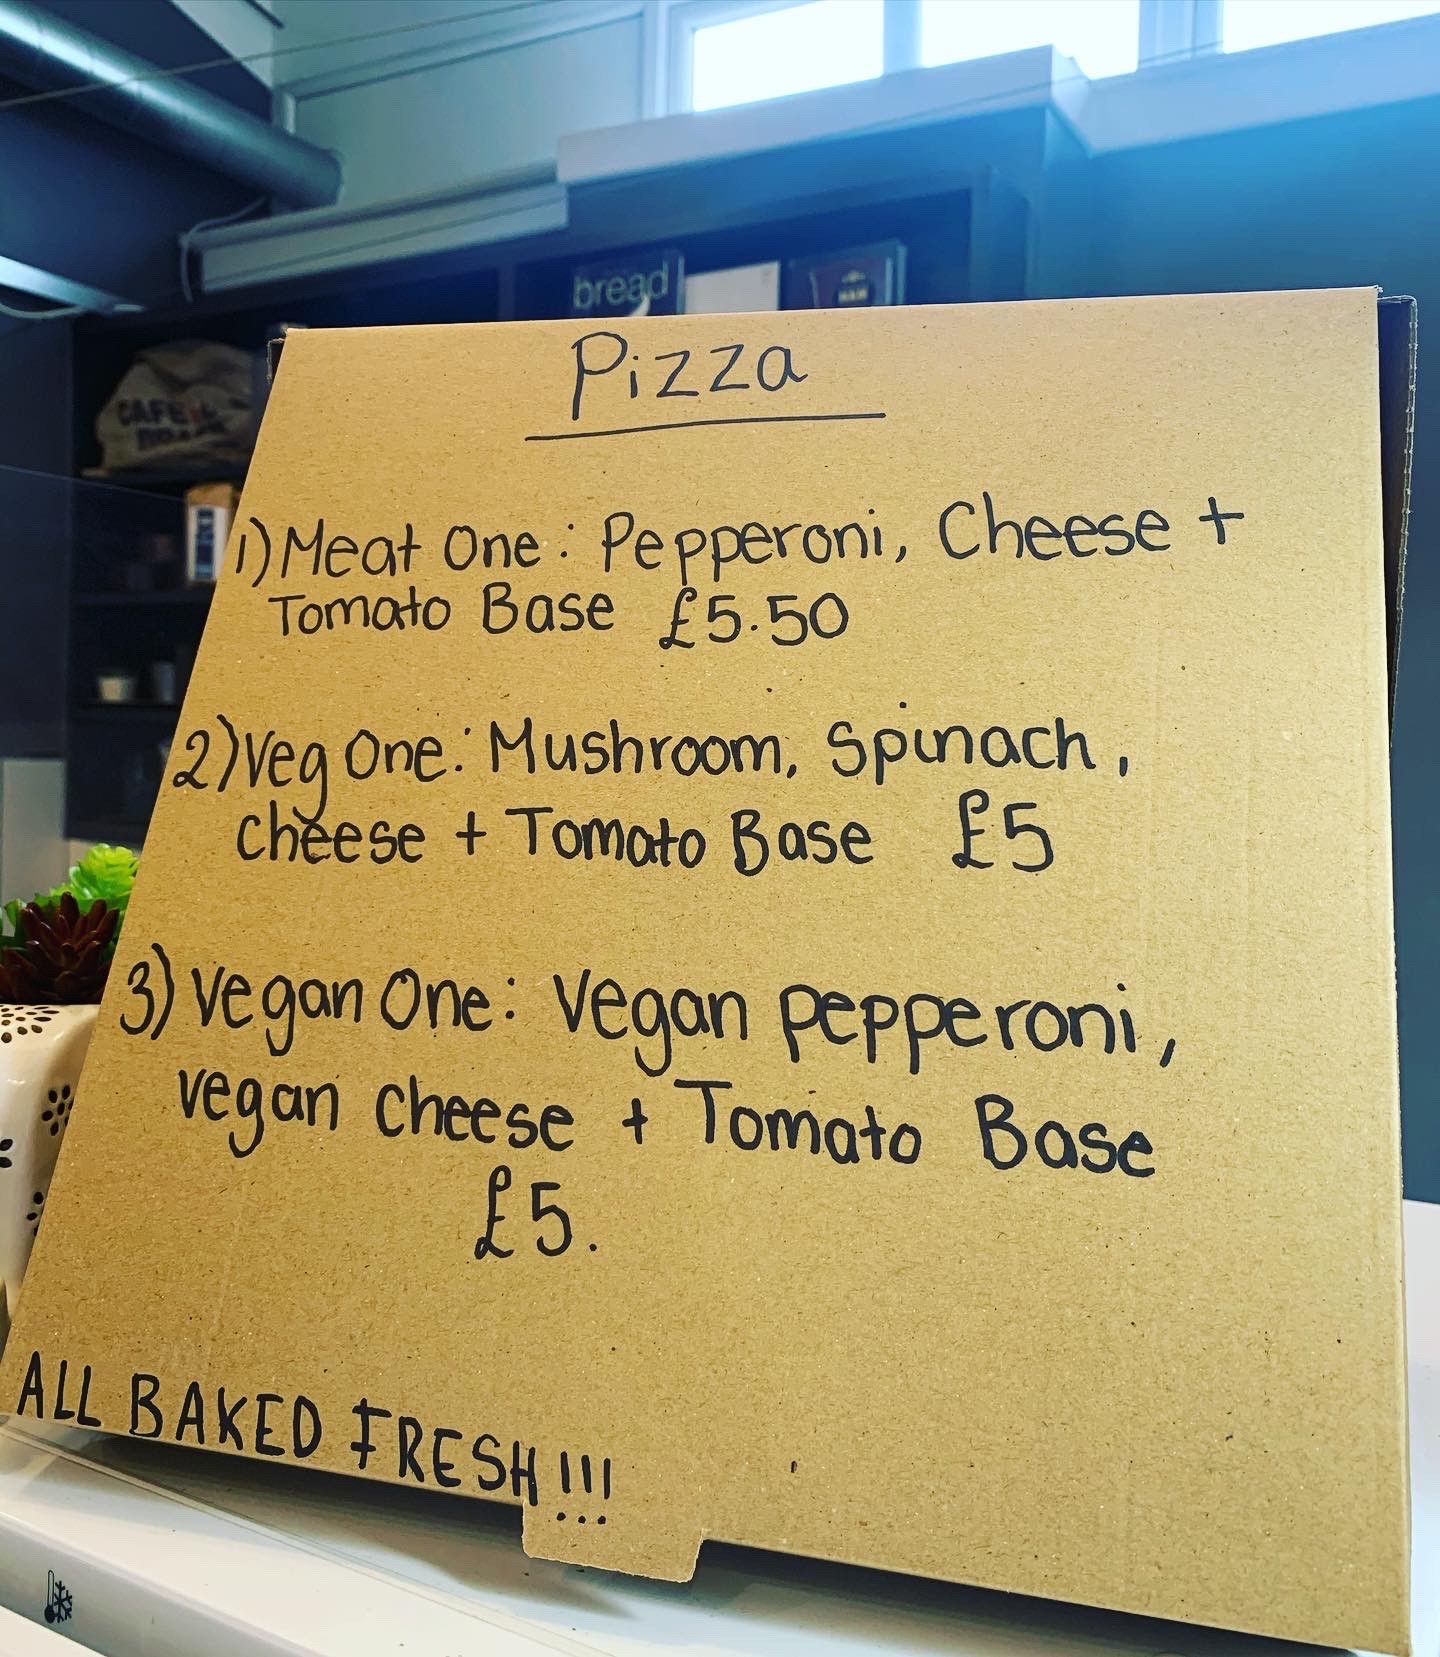 bread
CAFE
Pizza
1) Meat One: Pepperoni, Cheese +
Tomato Base £5.50
2) Veg One: Mushroom, Spinach,
cheese + Tomato Base £5
3) Vegan One: Vegan pepperoni,
vegan cheese + Tomato Base
£5.
ALL BAKED FRESH!!!